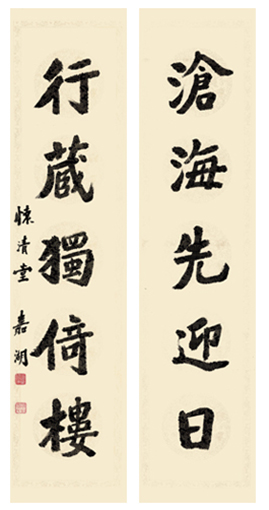 滄海先迎日
行蔵獨倚樓
清堂 嘉湖